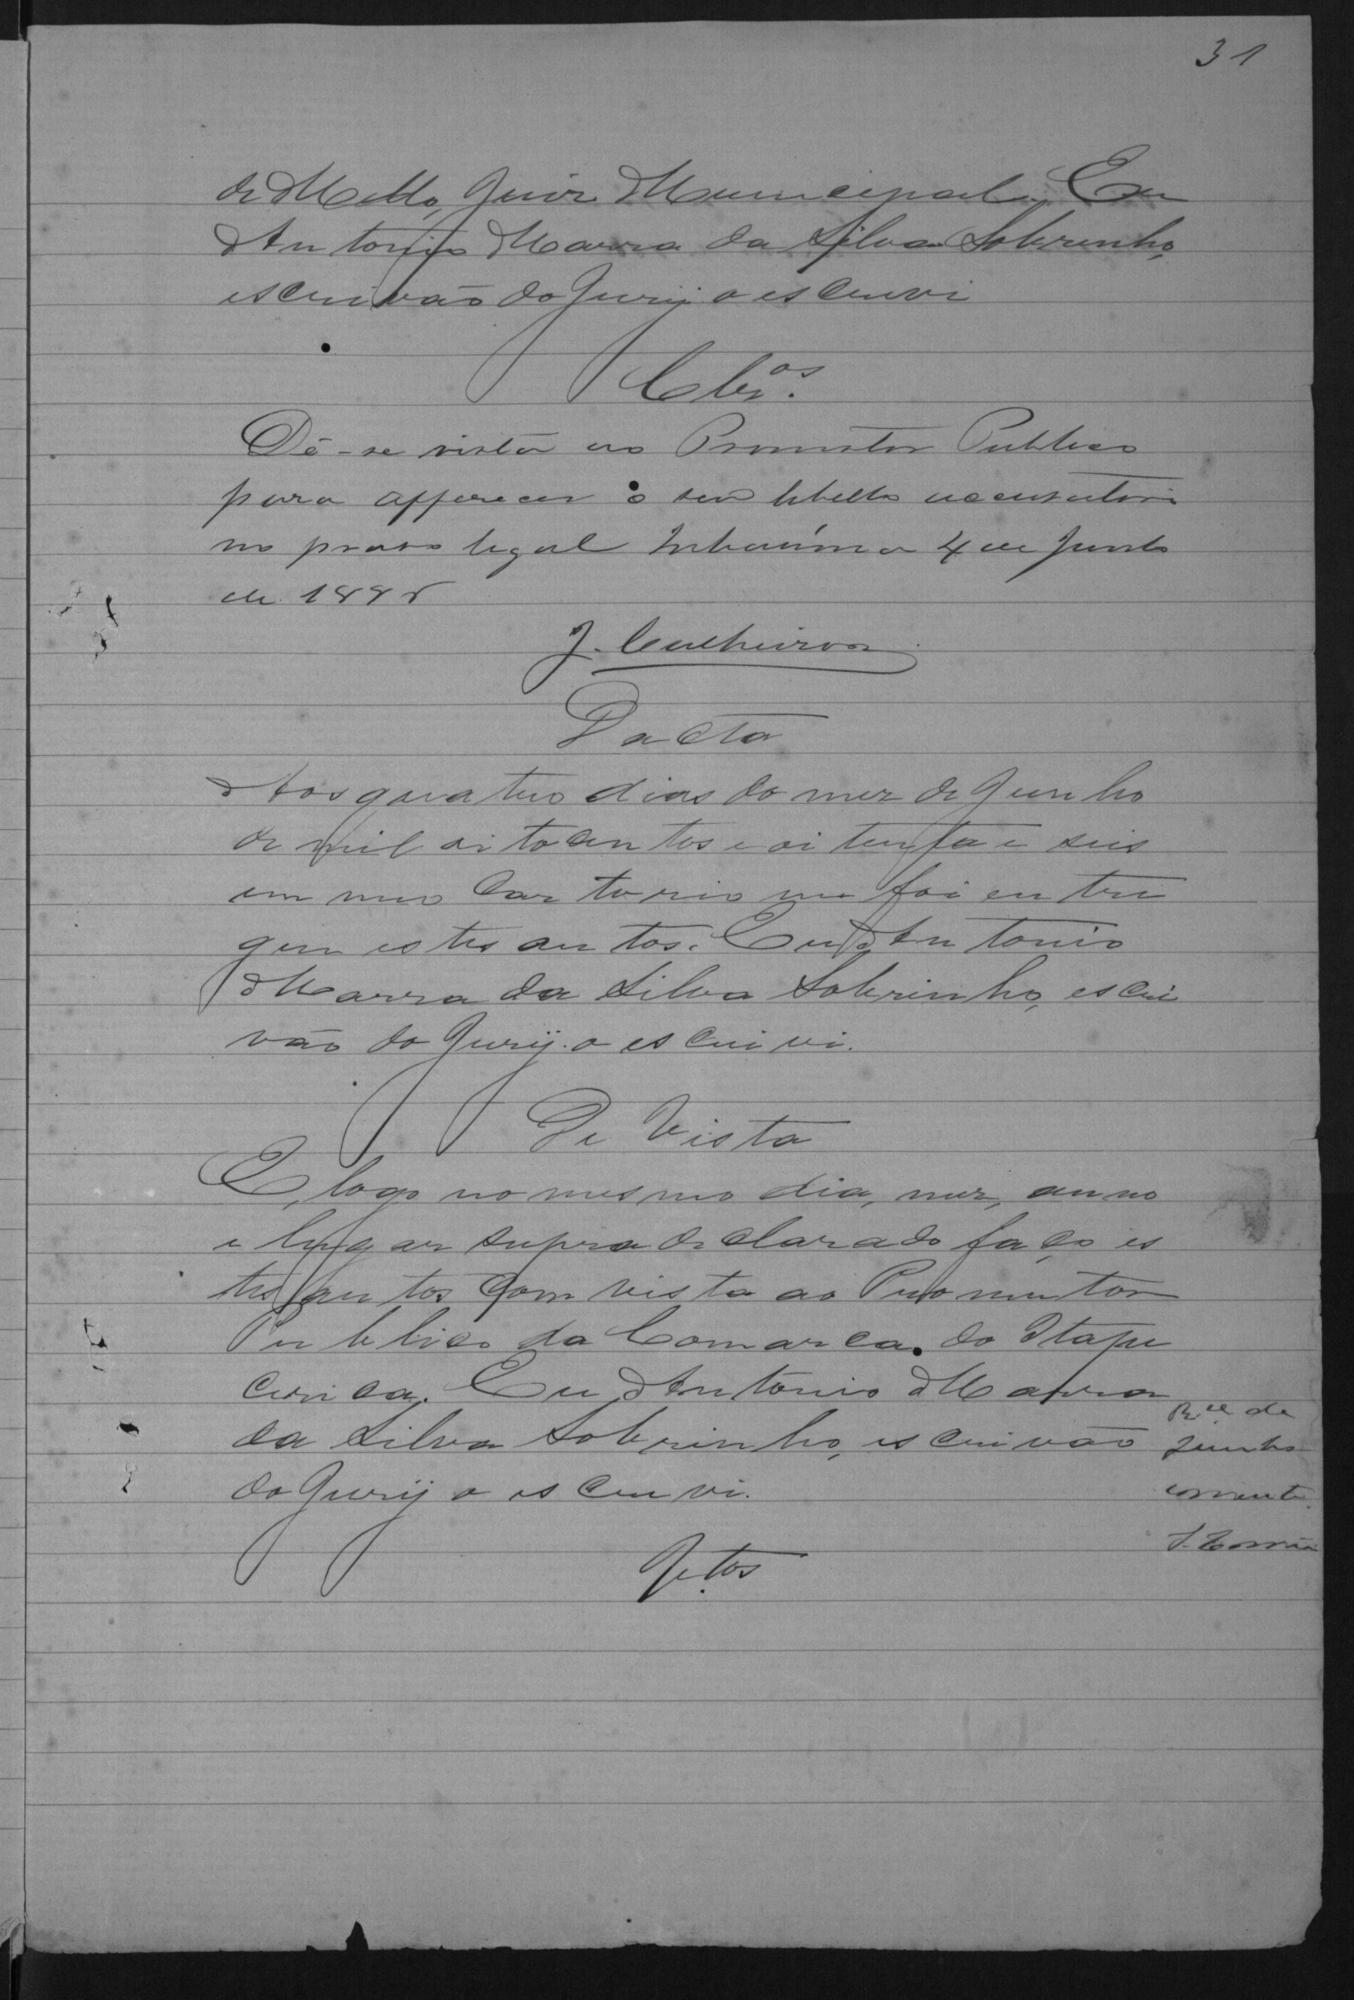 31
de Mello, Juiz Municipal. Eu
Antonio Marra da Silva Sobrinho,
escrivão do Jury o escrevi
Clsos.
Dê-se vista ao Promotor Publico
para offerecer o seu libello accusatori
no praso legal 4 de Junho
de 1886
J.
Dacta
Aos quatro dias do mez de Junho
de mil oitocentos e oitenta e seis
em meu Cartorio me foi entre
gue estes autos. Eu Antonio
Marra da Silva Sobrinho, escri
vão do Jury o escrivi.
De Vista
E logo no mesmo dia, mez, anno
e lugar supra declarado faço es
tes autos com vista ao Promutor
Publico da Comarca do Itape
cerica. Eu Antonio Marra
da Silva Sobrinho, escrivão
do Jury o escrevi.
de
Junho
corrente.